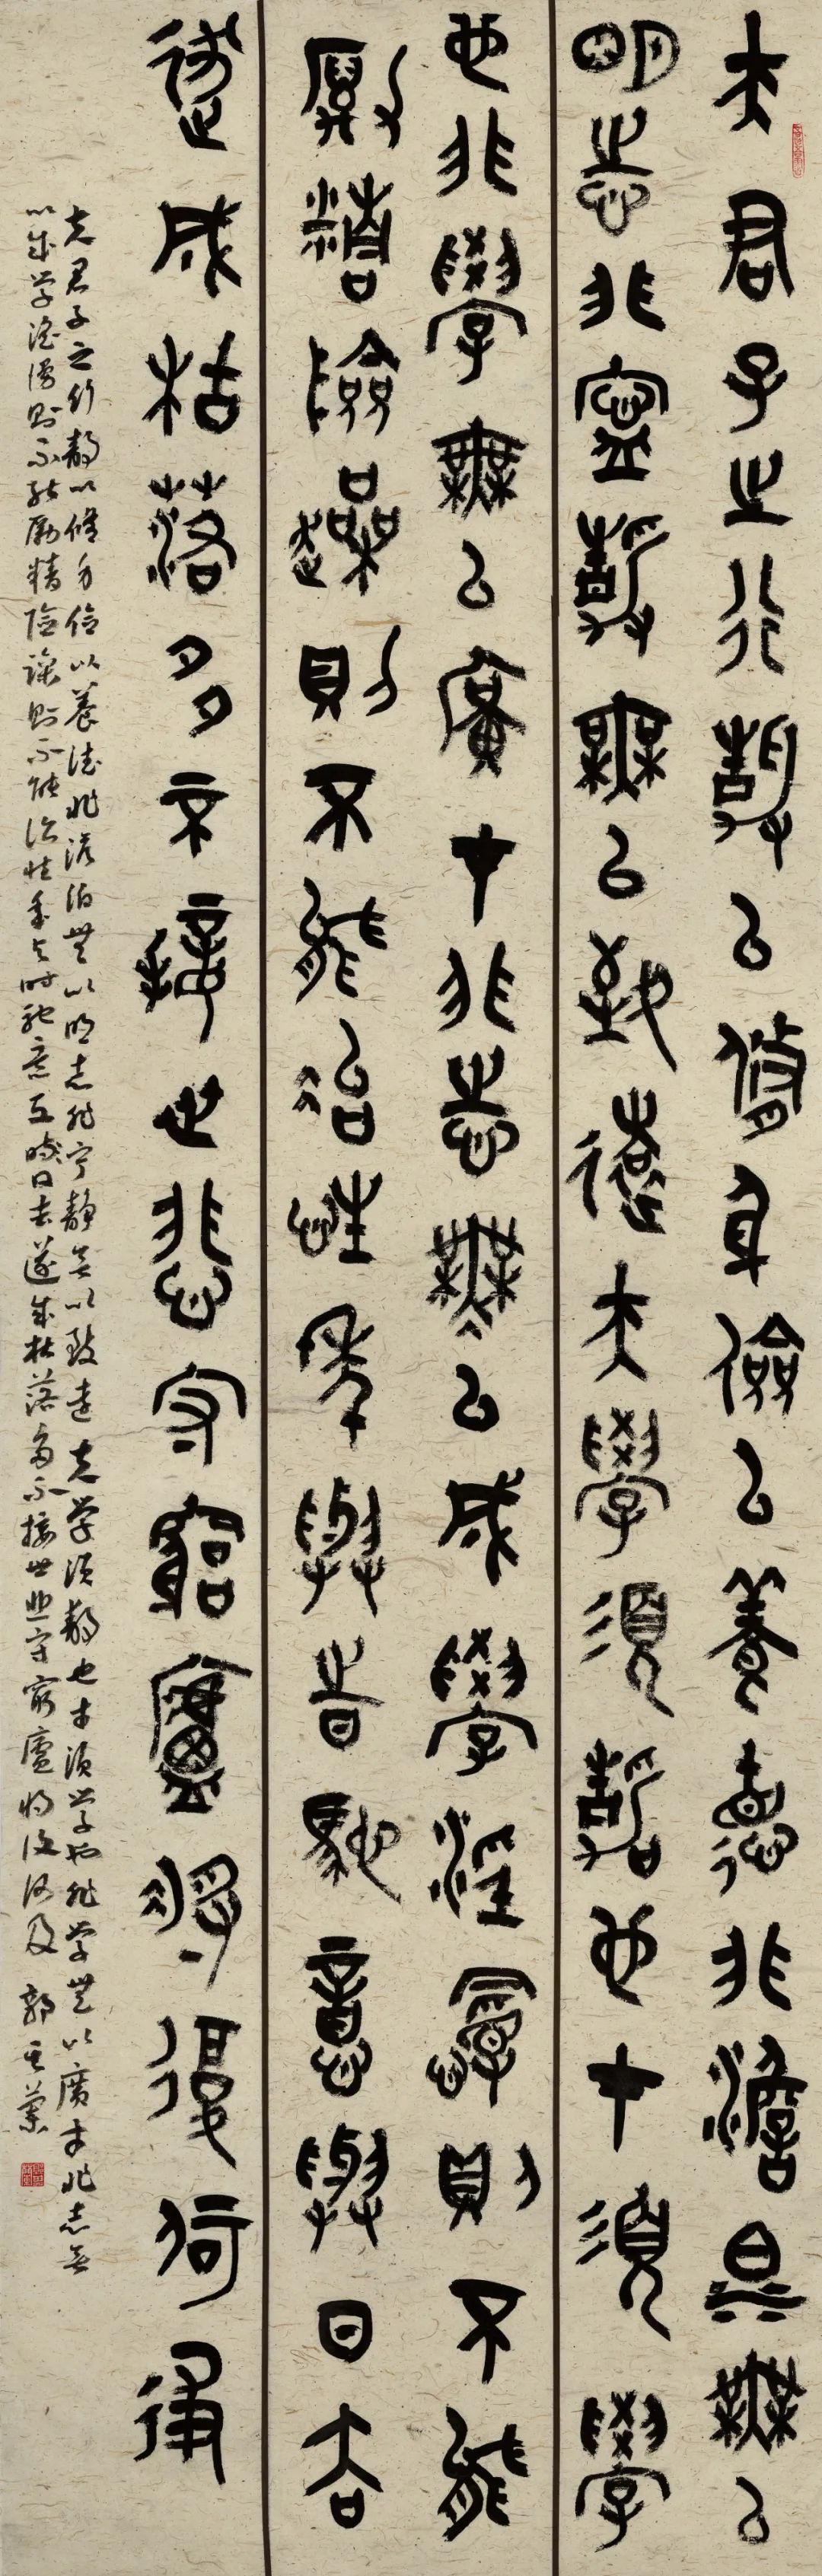 夫君子之行靜以修身儉以養德非澹泊無以
明志非寧靜無以致遠夫學須靜也才須學
也非學無以廣才非志無以成學淫慢則不能
勵精險躁則不能治性年與時馳意與日去
遂成枯落多不接世悲守窮廬將復何及
夫君子之行靜以修身儉以養德非澹泊無以明志非寧靜無以致遠夫学須靜也才須学也非学無以廣才非志無
以成学淫慢則不能勵精險躁則不能治性年与時馳意与歲日去遂成枯落多不接世悲守窮廬將復何及 郭